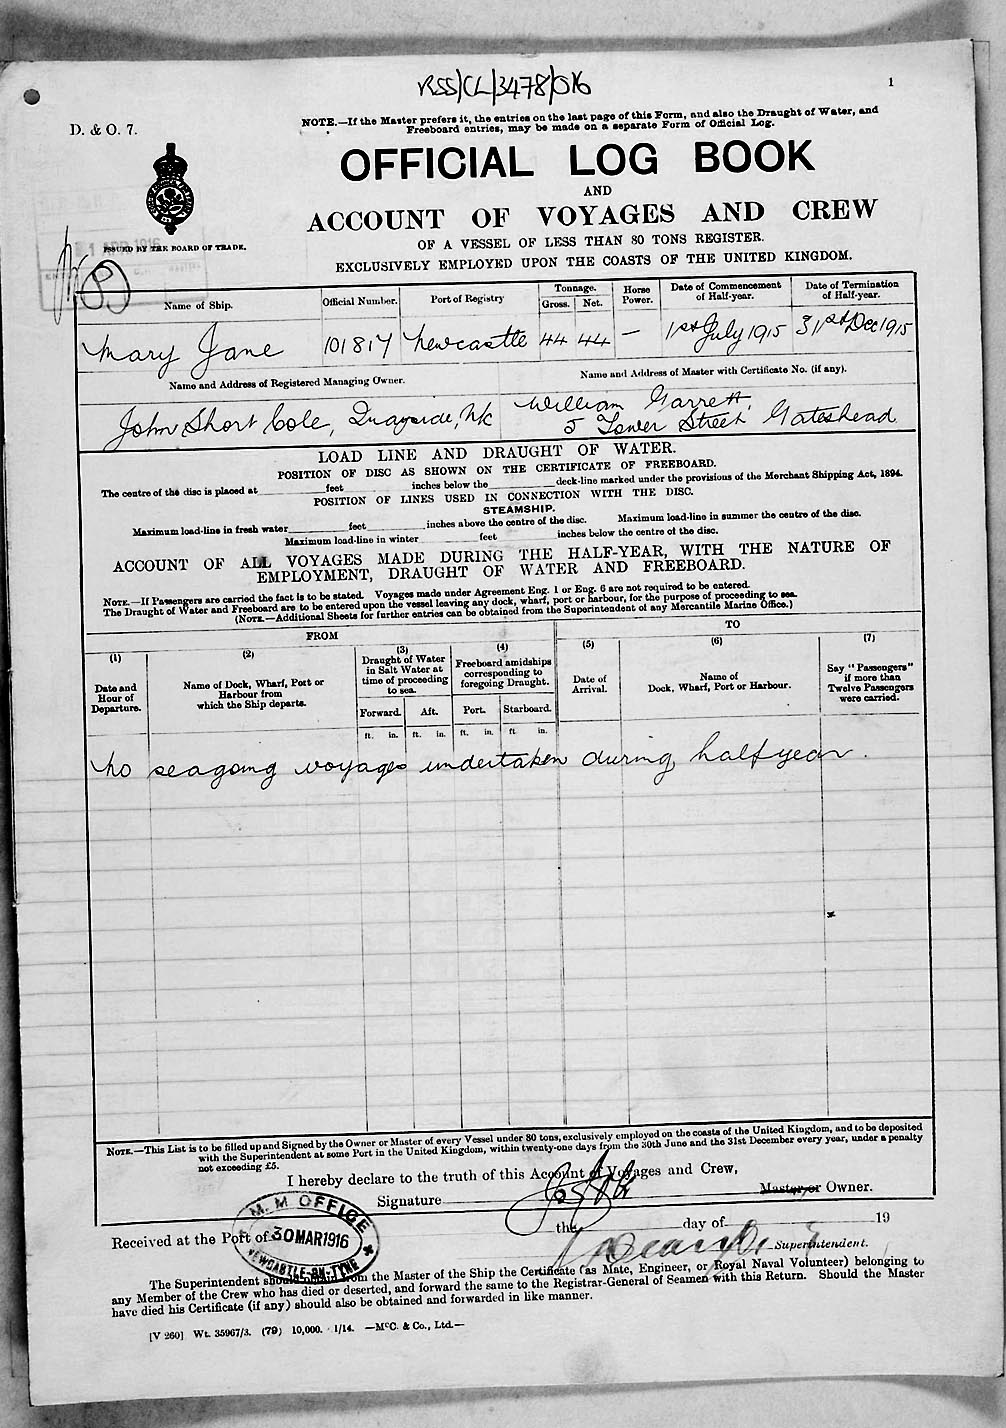 RSS/CL/3478/016
1
D. & O. 7.
NOTE.—If the Master prefers it, the entries on the last page of this Form, and also the Draught of Water, and
Freeboard entries, may be made on a separate Form of Official Log.
OFFICIAL LOG BOOK
AND
ACCOUNT OF VOYAGES AND CREW
OF A VESSEL OF LESS THAN 80 TONS REGISTER.
EXCLUSIVELY EMPLOYED UPON THE COASTS OF THE UNITED KINGDOM.
1 APR 1916
ISSUED BY THE BOARD OF TRADE.
Name of Ship. Official Number. Port of Registry Tonnage. Gross. Net. Horse Power. Date of Commencement of Half-year. Date of Termination of Half-year.
Mary Jane 101817 Newcastle 44 44 — 1st July 1915 31st Dec 1915
Name and Address of Registered Managing Owner. Name and Address of Master with Certificate No. (if any).
John Short Cole, Quayside, N/c William Garrett,
5 Tower Street Gateshead
LOAD LINE AND DRAUGHT OF WATER.
POSITION OF DISC AS SHOWN ON THE CERTIFICATE OF FREEBOARD.
The centre of the disc is placed at feet inches below the deck-line marked under the provisions of the Merchant Shipping Act, 1894.
POSITION OF LINES USED IN CONNECTION WITH THE DISC.
STEAMSHIP.
Maximum load-line in fresh water feet inches above the centre of the disc. Maximum load-line in summer the centre of the disc.
Maximum load-line in winter feet inches below the centre of the disc.
ACCOUNT OF ALL VOYAGES MADE DURING THE HALF-YEAR, WITH THE NATURE OF
EMPLOYMENT, DRAUGHT OF WATER AND FREEBOARD.
NOTE.—If Passengers are carried the fact is to be stated. Voyages made under Agreement Eng. 1 or Eng. 6 are not required to be entered.
The Draught of Water and Freeboard are to be entered upon the vessel leaving any dock, wharf, port or harbour, for the purpose of proceeding to sea.
(NOTE.—Additional Sheets for further entries can be obtained from the Superintendent of any Mercantile Marine Office.)
FROM TO
(1) (2) (3) (4) (5) (6) (7)
Date and Hour of Departure. Name of Dock, Wharf, Port or Harbour from which the Ship departs. Draught of Water in Salt Water at time of proceeding to sea. Freeboard amidships corresponding to foregoing Draught. Date of Arrival. Name of Dock, Wharf, Port or Harbour. Say "Passengers" if more than Twelve Passengers were carried.
Forward. Aft. Port. Starboard.
ft. in. ft. in. ft. in. ft. in.
No seagoing voyages undertaken during half year.
NOTE.—This List is to be filled up and Signed by the Owner or Master of every Vessel under 80 tons, exclusively employed on the coasts of the United Kingdom, and to be deposited
with the Superintendent at some Port in the United Kingdom, within twenty-one days from the 30th June and the 31st December every year, under a penalty
not exceeding £5.
I hereby declare to the truth of this Account of Voyages and Crew,
Signature Master or Owner.
Received at the Port of the day of 19
M. M OFFICE
30 MAR 1916
NEWCASTLE-ON-TYNE
Superintendent.
The Superintendent should obtain from the Master of the Ship the Certificate (as Mate, Engineer, or Royal Naval Volunteer) belonging to
any Member of the Crew who has died or deserted, and forward the same to the Registrar-General of Seamen with this Return. Should the Master
have died his Certificate (if any) should also be obtained and forwarded in like manner.
[V 260] Wt. 35967/3. (79) 10,000. 1/14. —McC. & Co., Ltd.—